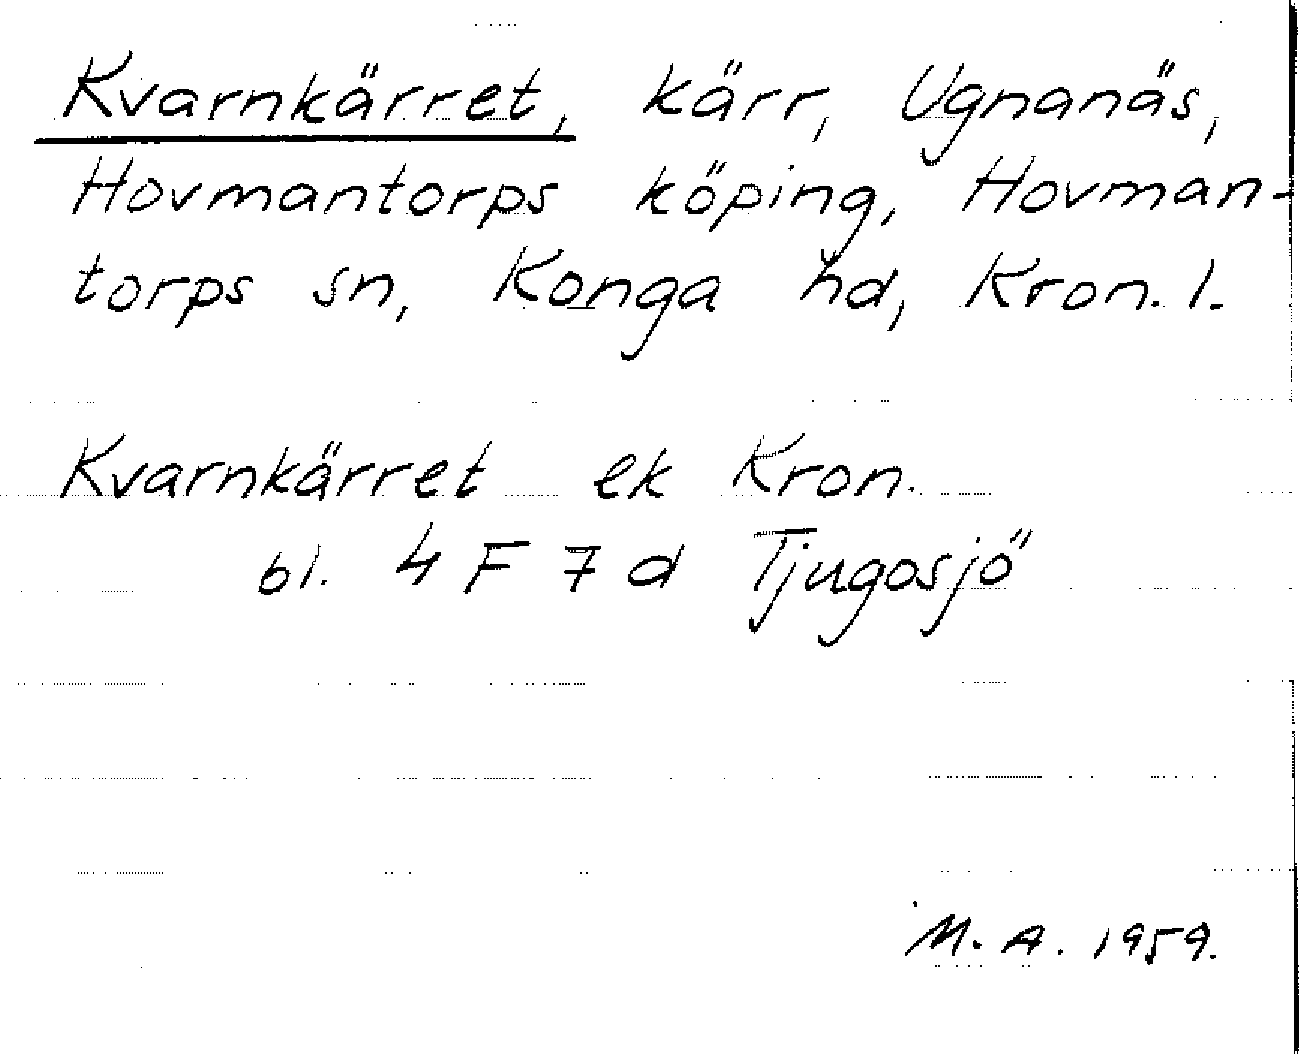 Kvarnkärret, kärr, Ugnanäs,
Hovmantorps köping, Hovman-
torps sn, Konga hd, Kron. l.
Kvarnkärret ek Kron.
bl. 4 F 7 d Tjugosjö
M. A. 1959.